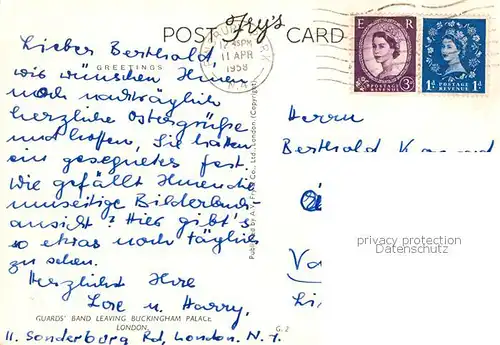 POST Fry's CARD
GREETINGS
PARK
12 45PM
11 APR
1958
N.4
E R
POSTAGE REVENUE
3D
POSTAGE REVENUE
1D 1D
Lieber Berthold
wir wünschen Ihnen
noch nachträglich
herzliche Ostergrüße
und hoffen, Sie hatten
ein gesegnetes fest.
Wie gefällt Ihnen die
umseitige Bilderbuch-
ansicht? Hier gibt's
so etwas noch täglich
zu sehen.
Herzlichst Ihre
Lore u. Harry.
GUARDS' BAND LEAVING BUCKINGHAM PALACE
LONDON. G.2
11. Sonderburg Rd, London. N.7
Published by A.V. Co., Ltd., London. (Copyright)
Herrn
Berthold
privacy protection
Datenschutz